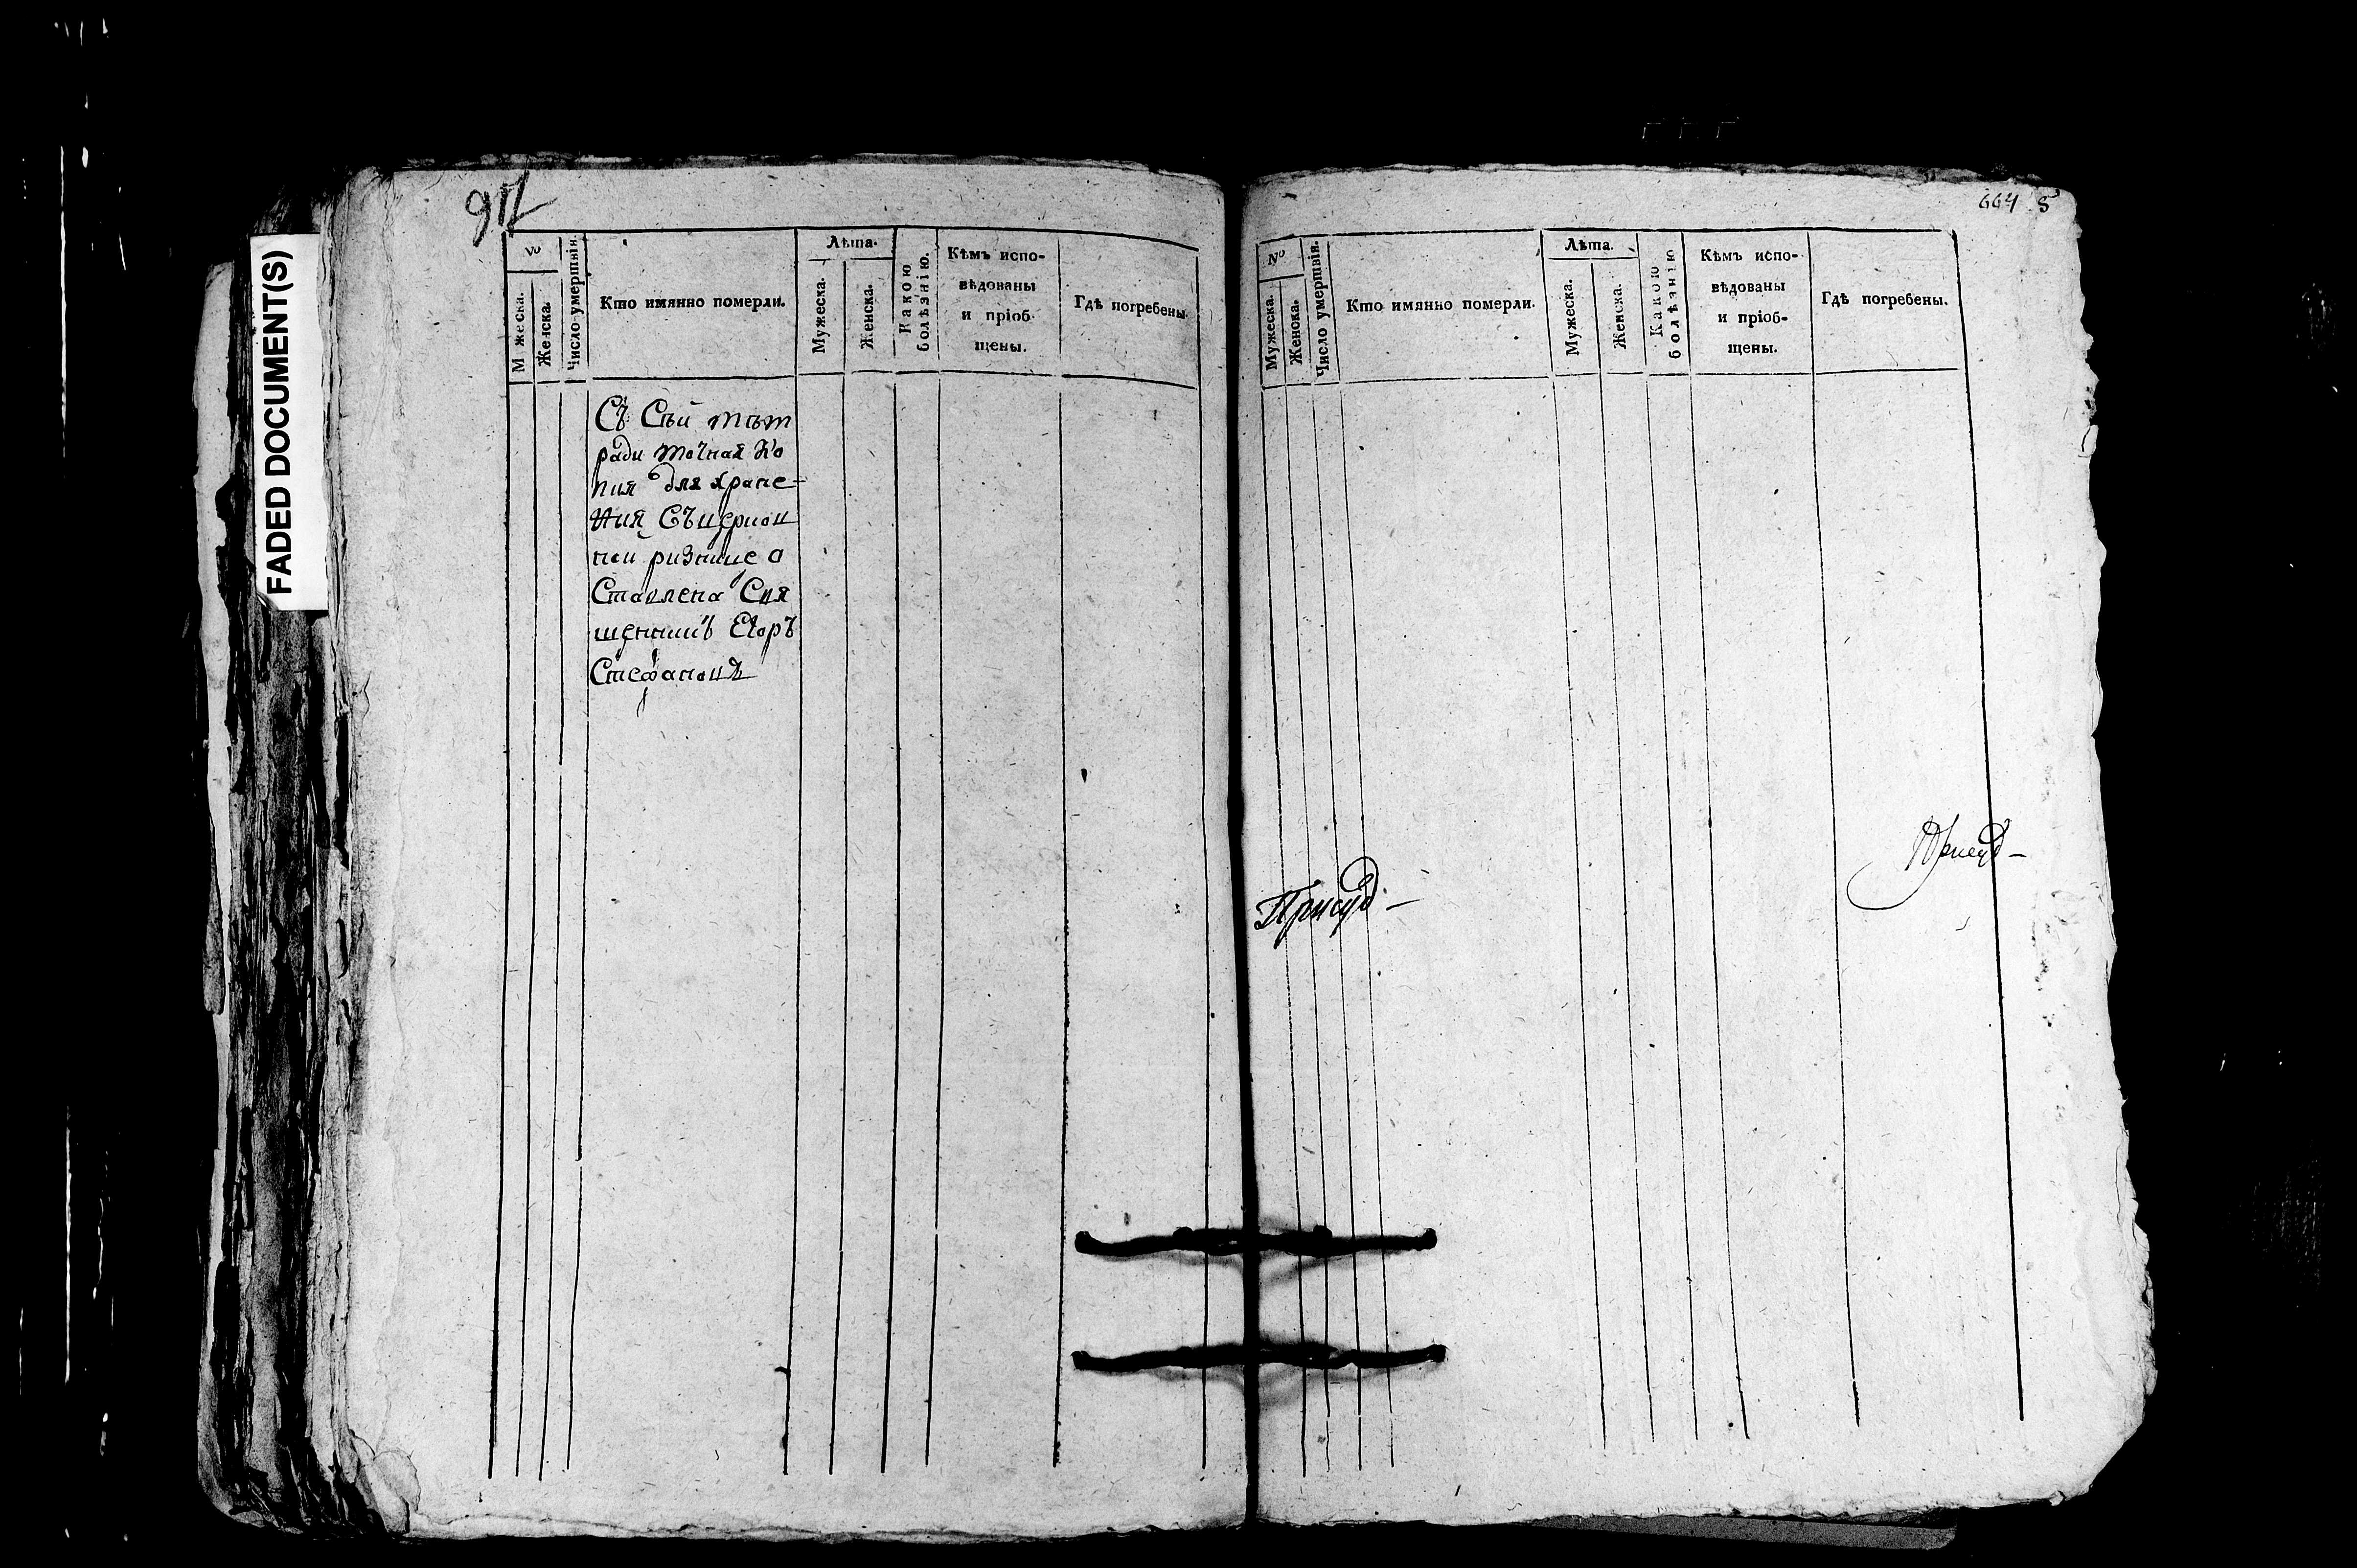 FADED DOCUMENT(S)
917
№
Лѣта.
М жеска.
Женска.
Число умертвія.
Кто имянно померли.
Мужеска.
Женска.
Какою
болѣзнію.
Кѣмъ испо-
вѣдованы
и пріоб-
щены.
Гдѣ погребены.
Съ Сѣй тѣт
ради точная Ко
пия для хране-
ния Съцерков
ной ризнице о
Ставлена Свя
щенникъ Егоръ
Стефановъ
664 8
№
Лѣта.
Мужеска.
Женска.
Число умертвія.
Кто имянно померли.
Мужеска.
Женска.
Какою
болѣзнію
Кѣмъ испо-
вѣдованы
и пріоб-
щены.
Гдѣ погребены.
Присуд-
Присуд-